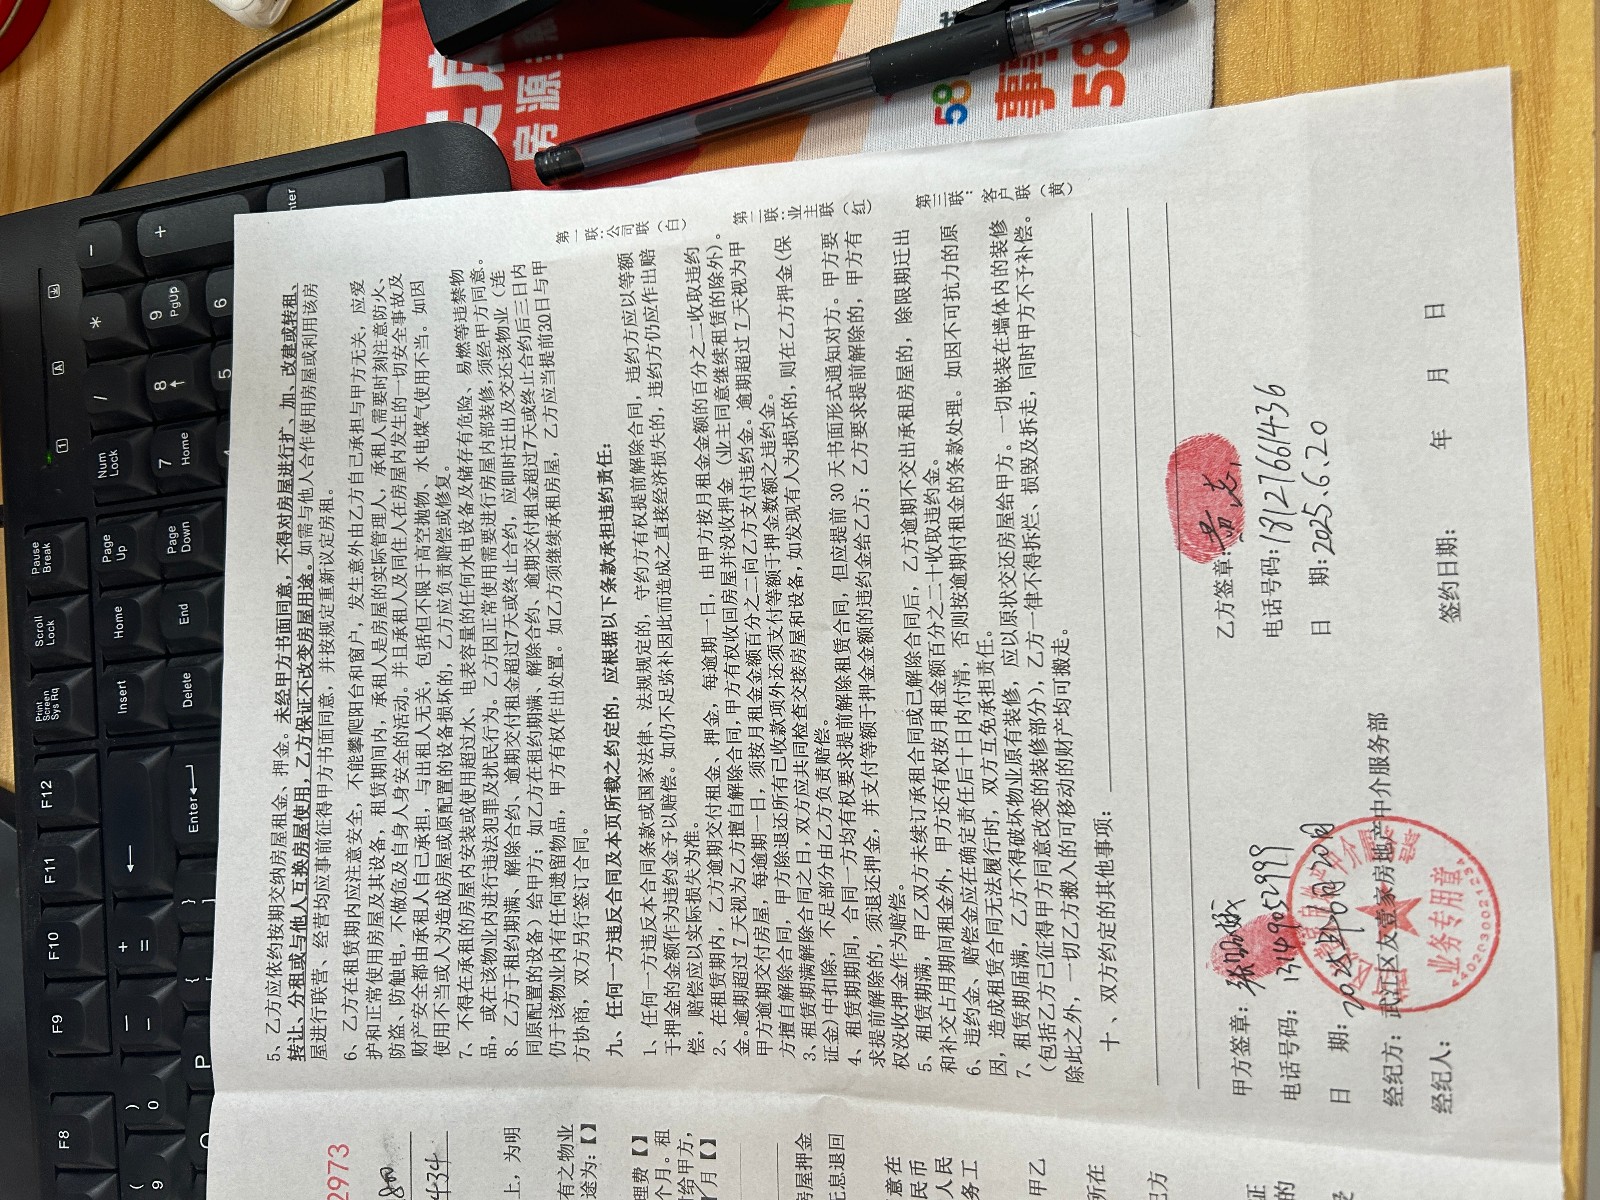 5、乙方应依约按期交纳房屋租金、押金。未经甲方书面同意，不得对房屋进行扩、加、改建或转租、
转让、分租或与他人互换房屋使用，乙方保证不改变房屋用途。如需与他人合作使用房屋或利用该房
屋进行联营、经营均应事前征得甲方书面同意，并按规定重新议定房租。
6、乙方在租赁期内应注意安全，不能攀爬阳台和窗户，发生意外由乙方自己承担与甲方无关，应爱
护和正常使用房屋及其设备，租赁期间内，承租人是房屋的实际管理人，承租人需要时刻注意防火、
防盗、防触电，不做危及自身人身安全的活动。并且承租人及同住人在房屋内发生的一切安全事故及
财产安全都由承租人自己承担，与出租人无关，包括但不限于高空抛物、水电煤气使用不当。如因
使用不当或人为造成房屋或原配置的设备损坏的，乙方应负责赔偿或修复。
7、不得在承租的房屋内安装或使用超过水、电表容量的任何水电设备及储存有危险、易燃等违禁物
品，或在该物业内进行违法犯罪及扰民行为。乙方因正常使用需要进行房屋内部装修，须经甲方同意。
8、乙方于租约期满、解除合约、逾期交付租金超过7天或终止合约，应即时迁出及交还该物业（连
同原配置的设备）给甲方；如乙方在租约期满、解除合约、逾期交付租金超过7天或终止合约后三日内
仍于该物业内有任何遗留物品，甲方有权作出处置。如乙方须继续承租房屋，乙方应当提前30日与甲
方协商，双方另行签订合同。
九、任何一方违反合同及本页所载之约定的，应根据以下条款承担违约责任：
1、任何一方违反本合同条款或国家法律、法规规定的，守约方有权提前解除合同，违约方应以等额
于押金的金额作为违约金予以赔偿。如仍不足弥补因此而造成之直接经济损失的，违约方仍应作出赔
偿，赔偿应以实际损失为准。
2、在租赁期内，乙方逾期交付租金、押金，每逾期一日，由甲方按月租金金额的百分之二收取违约
金。逾期超过7天视为乙方擅自解除合同，甲方有权收回房屋并没收押金（业主同意继续租赁的除外）。
甲方逾期交付房屋，每逾期一日，须按月租金金额百分之二向乙方支付违约金。逾期超过7天视为甲
方擅自解除合同，甲方除退还所有已收款项外还须支付等额于押金数额之违约金。
3、租赁期满解除合同之日，双方应共同检查交接房屋和设备，如发现有人为损坏的，则在乙方押金(保
证金)中扣除，不足部分由乙方负责赔偿。
4、租赁期期间，合同一方均有权要求提前解除租赁合同，但应提前30天书面形式通知对方。甲方要
求提前解除的，须退还押金，并支付等额于押金金额的违约金给乙方；乙方要求提前解除的，甲方有
权没收押金作为赔偿。
5、租赁期满，甲乙双方未续订承租合同或已解除合同后，乙方逾期不交出承租房屋的，除限期迁出
和补交占用期间租金外，甲方还有权按月租金额百分之二十收取违约金。
6、违约金、赔偿金应在确定责任后十日内付清，否则按逾期付租金的条款处理。如因不可抗力的原
因，造成租赁合同无法履行时，双方互免承担责任。
7、租赁期届满，乙方不得破坏物业原有装修，应以原状交还房屋给甲方。一切嵌装在墙体内的装修
（包括乙方已征得甲方同意改变的装修部分），乙方一律不得拆烂、损毁及拆走，同时甲方不予补偿。
除此之外，一切乙方搬入的可移动的财产均可搬走。
十、双方约定的其他事项：
第一联：公司联（白）
第二联：业主联（红）
第三联：客户联（黄）
甲方签章：
电话号码：13149052999
日 期：
经纪方：武江区友壹家房地产中介服务部
经纪人：
乙方签章：
电话号码：18127661436
日 期：2025.6.20
签约日期： 年 月 日
业务专用章
2973
800
434
上，为明
有之物业
途为：【】
理费【】
个月。租
付给甲方，
月【】
房屋押金
无息退回
意在
民币
人民
务工
甲乙
所在
房源
58
58
Print Screen Sys Rq
Scroll Lock
Pause Break
Insert
Home
Page Up
Delete
End
Page Down
Num Lock
/
*
-
7 Home
8
9 PgUp
+
4
5
6
Enter
F8
F9
F10
F11
F12
P